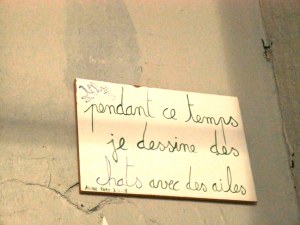 pendant ce temps
je dessine des
chats avec des ailes